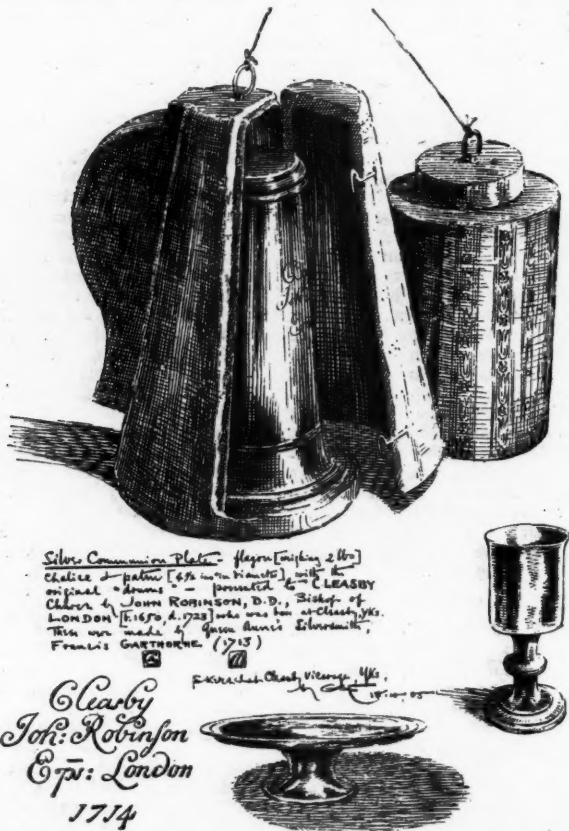 Silver Communion Plate - flagon [weighing 2 lbs]
Chalice & paten [4½ ins in diameter] with the
original "drums" - presented to CLEASBY
Church by JOHN ROBINSON, D.D., Bishop of
LONDON [b. 1650, d. 1723] who was born at Cleasby, Yks.
These were made by Queen Anne's Silversmith,
Francis GARTHORNE (1713)
Cleasby Vicarage, Yks.
18.10.05
Cleasby
Joh: Robinson
Eps: London
1714